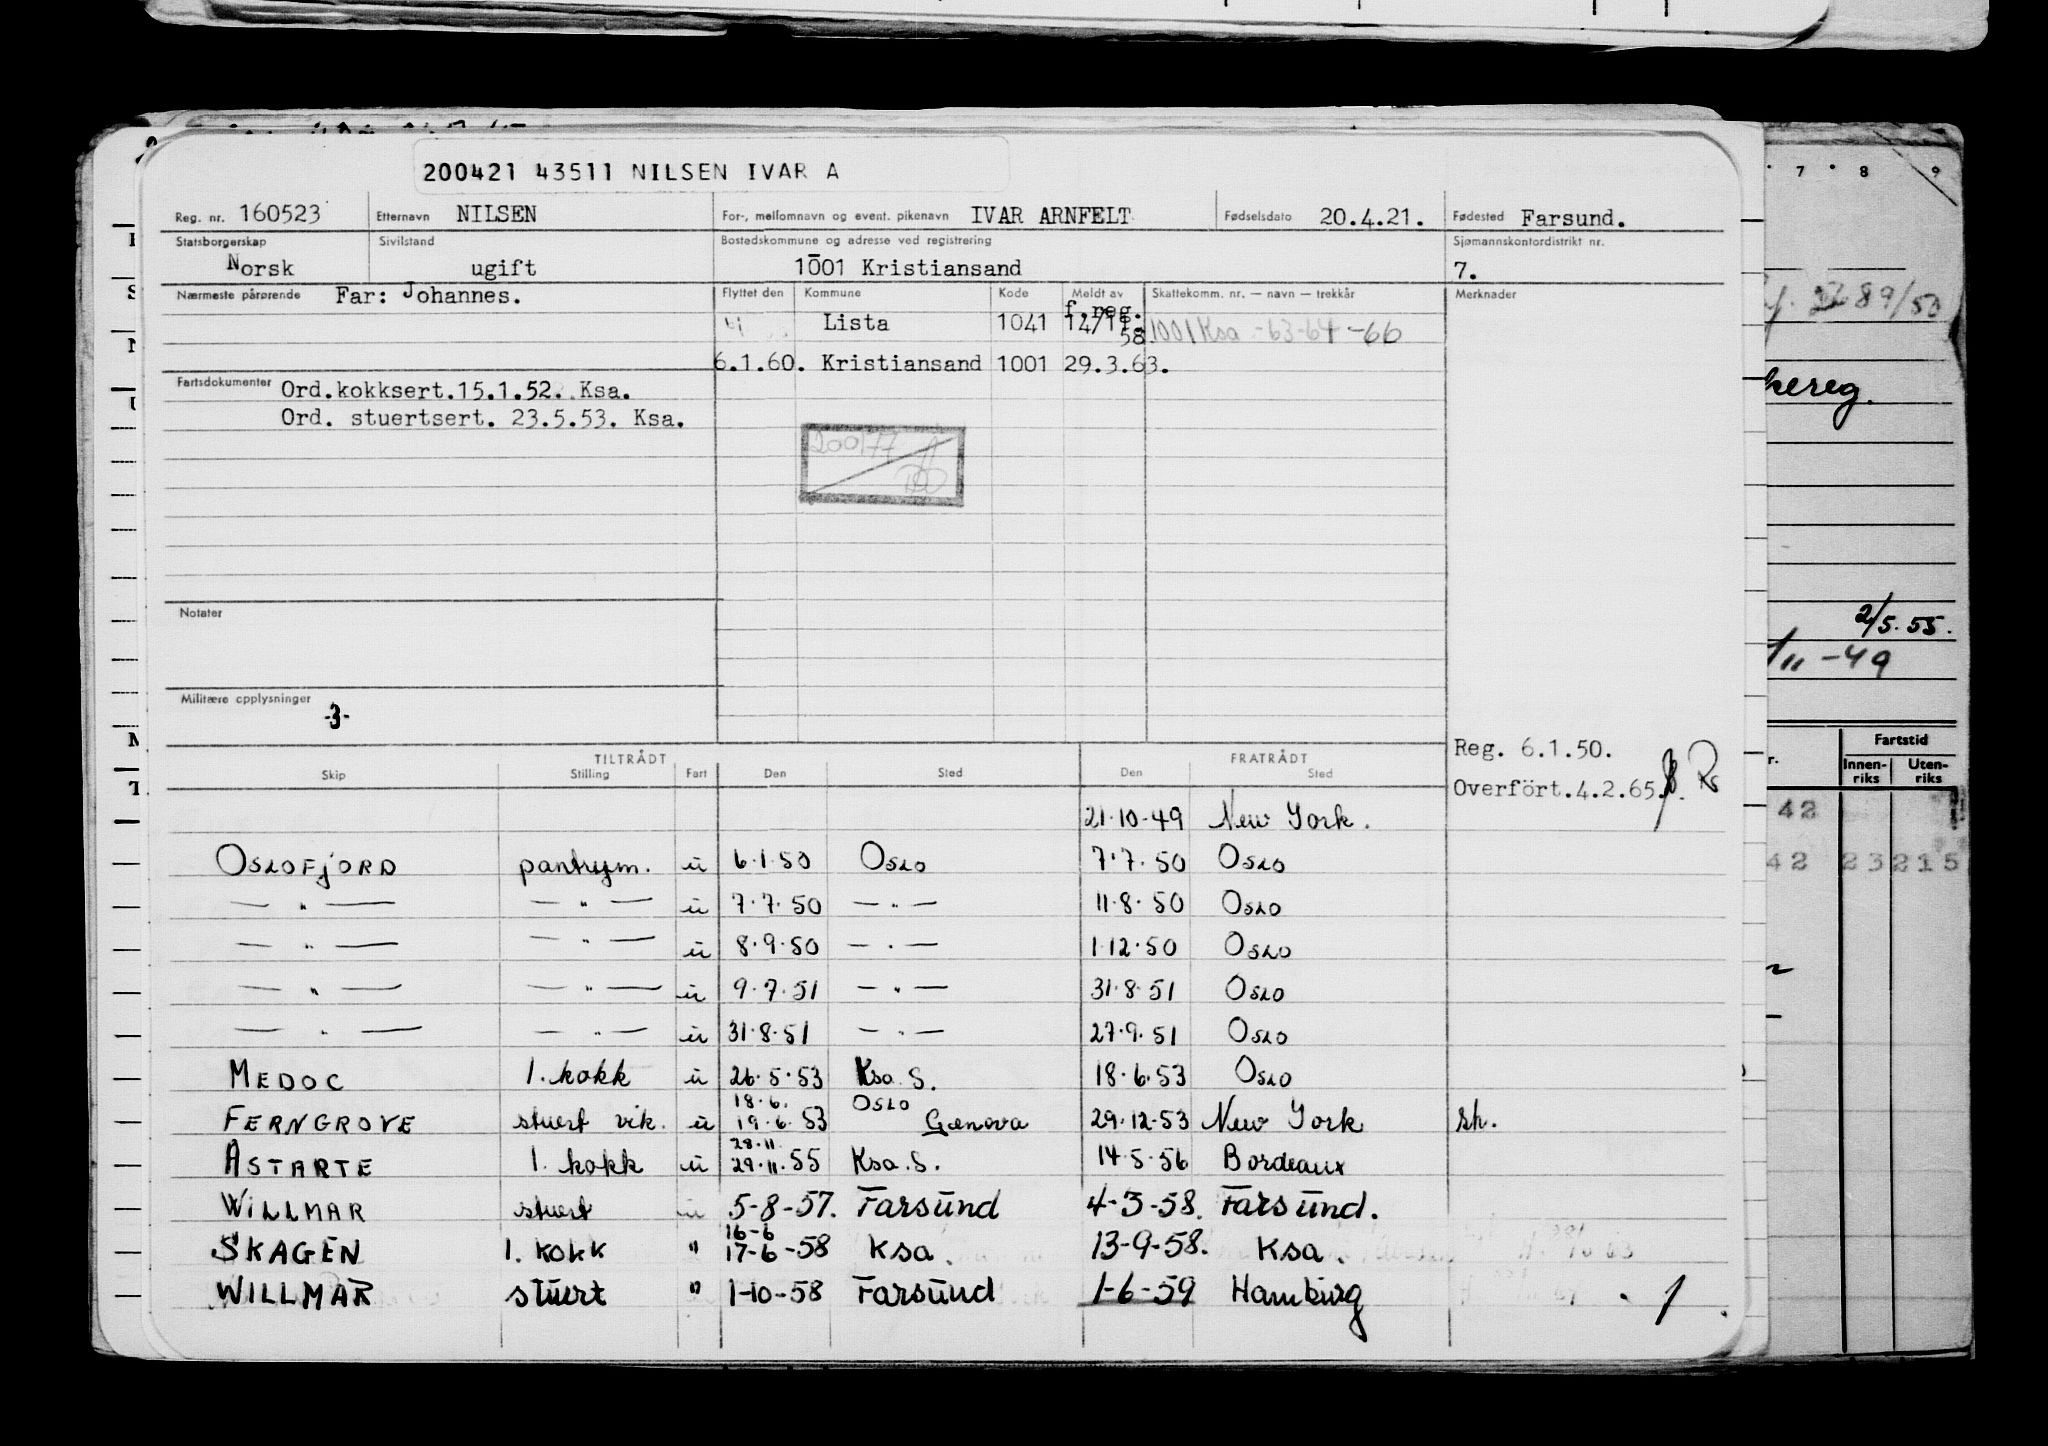 200421 43511 NILSEN IVAR A
Reg. nr. 160523 Etternavn NILSEN For-, mellomnavn og event. pikenavn IVAR ARNFELT Fødselsdato 20.4.21. Fødested Farsund.
Statsborgerskap Sivilstand Bostedskommune og adresse ved registrering Sjømannskontordistrikt nr.
Norsk ugift 1001 Kristiansand 7.
Nærmeste pårørende Far: Johannes. Flyttet den Kommune Kode Meldt av Skattekomm. nr. — navn — trekkår Merknader
f.reg.
Lista 1041 14/11. 58. 1001 Ksa -63-64-66
6.1.60. Kristiansand 1001 29.3.63.
Fartsdokumenter Ord.kokksert.15.1.52. Ksa.
Ord. stuertsert. 23.5.53. Ksa.
200177
Notater
Militære opplysninger
-3-
Reg. 6.1.50.
Overfört.4.2.65.
TILTRÅDT FRATRÅDT
Skip Stilling Fart Den Sted Den Sted
21.10.49 New York.
OSLOFJORD pantrym. u 6.1.50 Oslo 7.7.50 Oslo
— " — — " — u 7.7.50 — " — 11.8.50 Oslo
— " — — " — u 8.9.50 — " — 1.12.50 Oslo
— " — — " — u 9.7.51 — " — 31.8.51 Oslo
— " — — " — u 31.8.51 — " — 27.9.51 Oslo
MEDOC 1. kokk u 26.5.53 Ksa. S. 18.6.53 Oslo
18.6. OSLO
FERNGROVE stuert vik. u 19.6.53 Genova 29.12.53 New York sk.
28.11.
ASTARTE 1. kokk u 29.11.55 Ksa. S. 14.5.56 Bordeaux
WILLMAR stuert u 5-8-57. Farsund 4-3-58. Farsund.
16-6
SKAGEN 1. kokk " 17-6-58 Ksa. 13-9-58. Ksa.
WILLMAR stuert " 1-10-58 Farsund 1-6-59 Hamburg
7 8 9
89/50
kereg.
2/5.55.
/11-49
Fartstid
Innen-riks Uten-riks
42
42 23 215